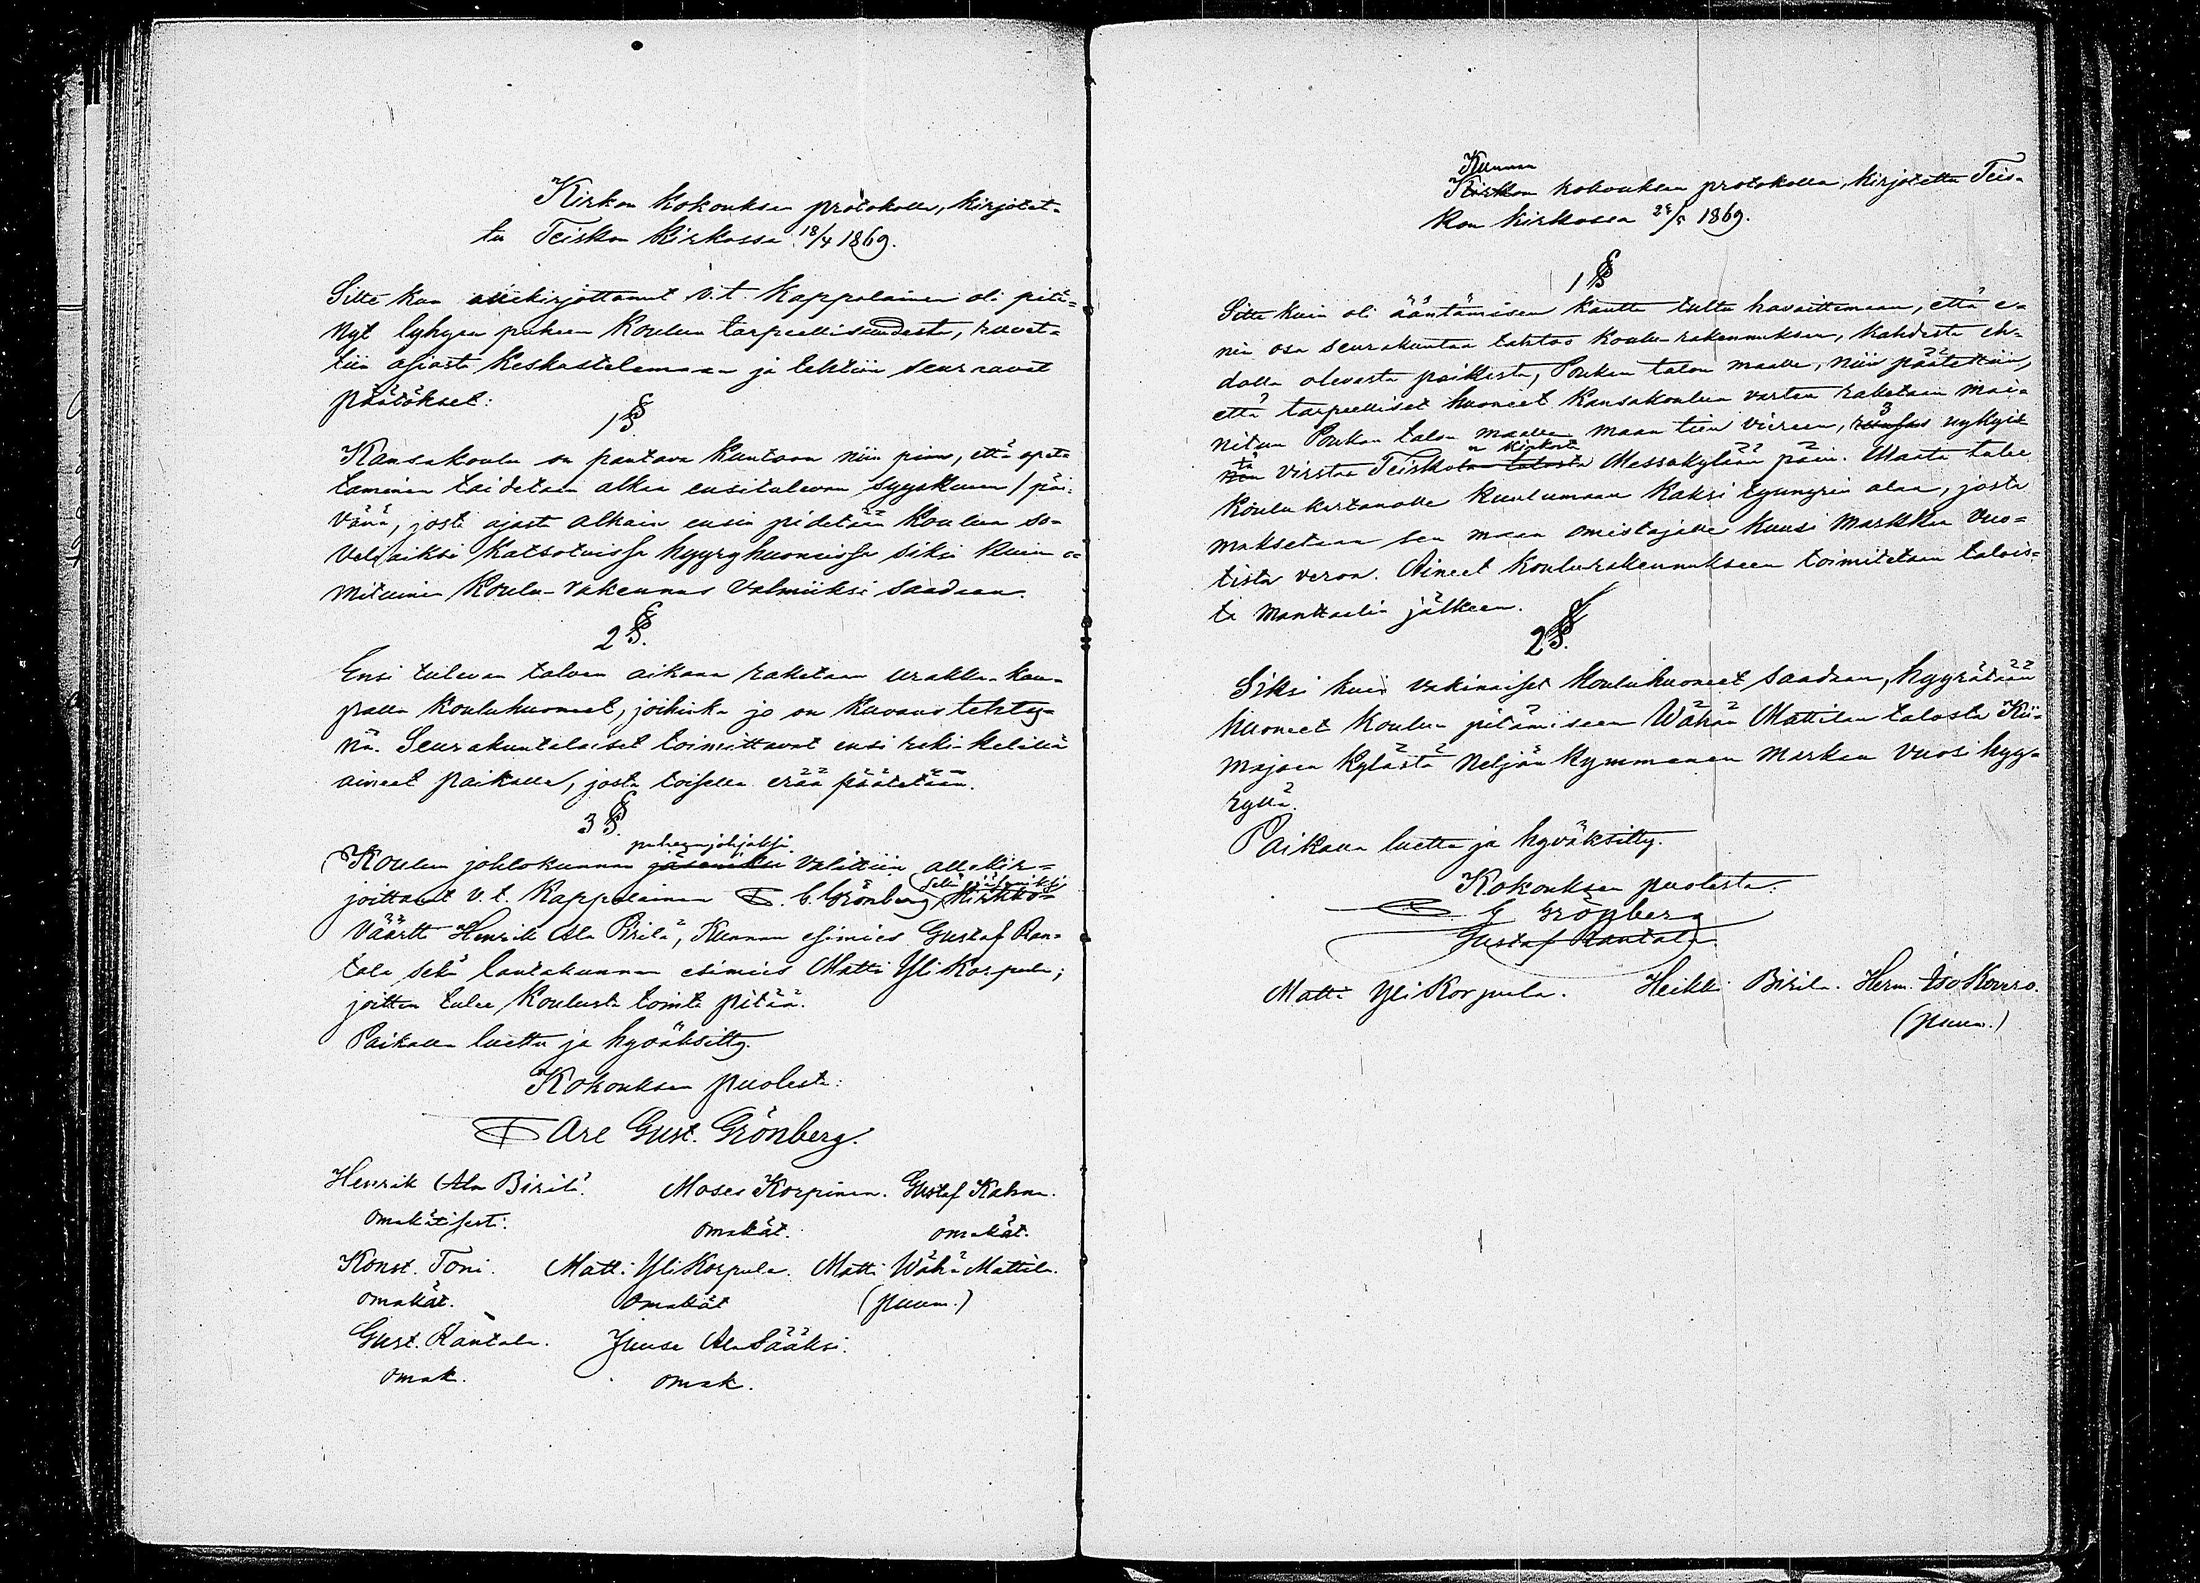 Kirkon kokouksen protokolla, kirjotet-
tu Teiskon kirkossa 18/4 1869.
Sitte kun allekirjottanut v.t. Kappalainen oli pitä-
nyt lyhyen puheen koulun tarpeellisuudesta, ruvet-
tiin asiasta keskustelemaan ja tehtiin seuraavat
päätökset:
1 §.
Kansakoulu on pantava kuntoon niin pian, että opet-
taminen taidetaan alkaa ensitulevan syyskuun 1 päi-
vänä, josta ajasta alkain ensin pidetään koulua so-
veliaiksi katsotuissa hyyryhuoneissa siksi kuin o-
mituinen koulu-rakennus valmiiksi saadaan.
2 §.
Ensi tulevan talven aikana raketaan urakka-kau-
palla kouluhuoneet, joihinka jo on kuvaus tehty-
nä. Seurakuntalaiset toimittavat ensi reki-kelillä
aineet paikalle, josta toisella erää päätetään.
3 §.
puheenjohtajaksi
Koulun johtokunnan jäseniksi valittiin allekir-
joittanut v.t. Kappalainen C. G. Grönberg, sekä jäseniksi Kirkko-
väärtti Henrik Ala Pirilä, Kunnan esimies Gustaf Ran-
tala sekä lautakunnan esimies Matti Yli Korpula;
joitten tulee koulusta tointa pitää.
Paikalla luettu ja hyväksitty.
Kokouksen puolesta:
Carl Gust. Grönberg.
Henrik Ala Birilä. Moses Korpinen. Gustaf Kahna.
omakätisesti. omakät. omakät.
Konst. Toni. Matti Yli Korpula. Matti Wähä Mattila.
omakät. omakät (puum.)
Gust. Rantala. Juuse Ala Sääksi.
omak. omak.
Kunnan
Kirkon kokouksen protokolla, kirjotettu Teis-
kon kirkossa 1869.
1 §
Sitte kuin oli ääntämisen kautta tultu havaittemaan, että e-
nin osa seurakuntaa tahtoo koulu-rakennuksen, kahdesta eh-
dolla olevasta paikasta, Poukan talon maalle, niin päätettiin,
että tarpeelliset huoneet kansakoulua varten raketaan mai-
nitun Poukan talon maalle maan tien viereen, 3 nykyis-
tä virstaa Teiskon kirkosta Messukylään päin. Maata tulee
koulu kartanolle kuulumaan kaksi tynnyrin alaa, josta
maksetaan sen maan omistajalle kuusi markkaa vuo-
tista veroa. Aineet koulurakennukseen toimitetaan talois-
ta manttaalin jälkeen.
2 §.
Siksi kuin vakinaiset kouluhuoneet saadaan, hyyrätään
huoneet koulun pitämiseen Wähän Mattilan talosta Kii-
majoen kylästä neljän kymmenen markan vuosi hyy-
ryllä.
Paikalla luettu ja hyväksitty.
Kokouksen puolesta:
C. G Grönberg
Gustaf Rantala.
Matti Yli Korpula. Heikki Birila. Herm. Iso Kovero.
(puum.)